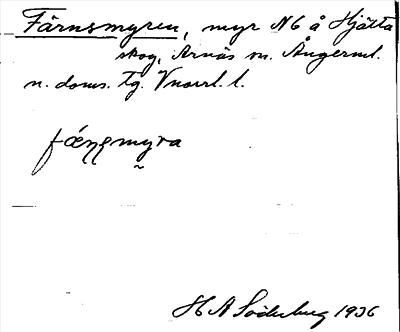 Färnsmyren, myr N6 å Hjälta
skog, Arnäs sn. Ångerml.
n. doms. tg. Vnorrl. l.
fæɳʂmyra
H A Söderberg 1936